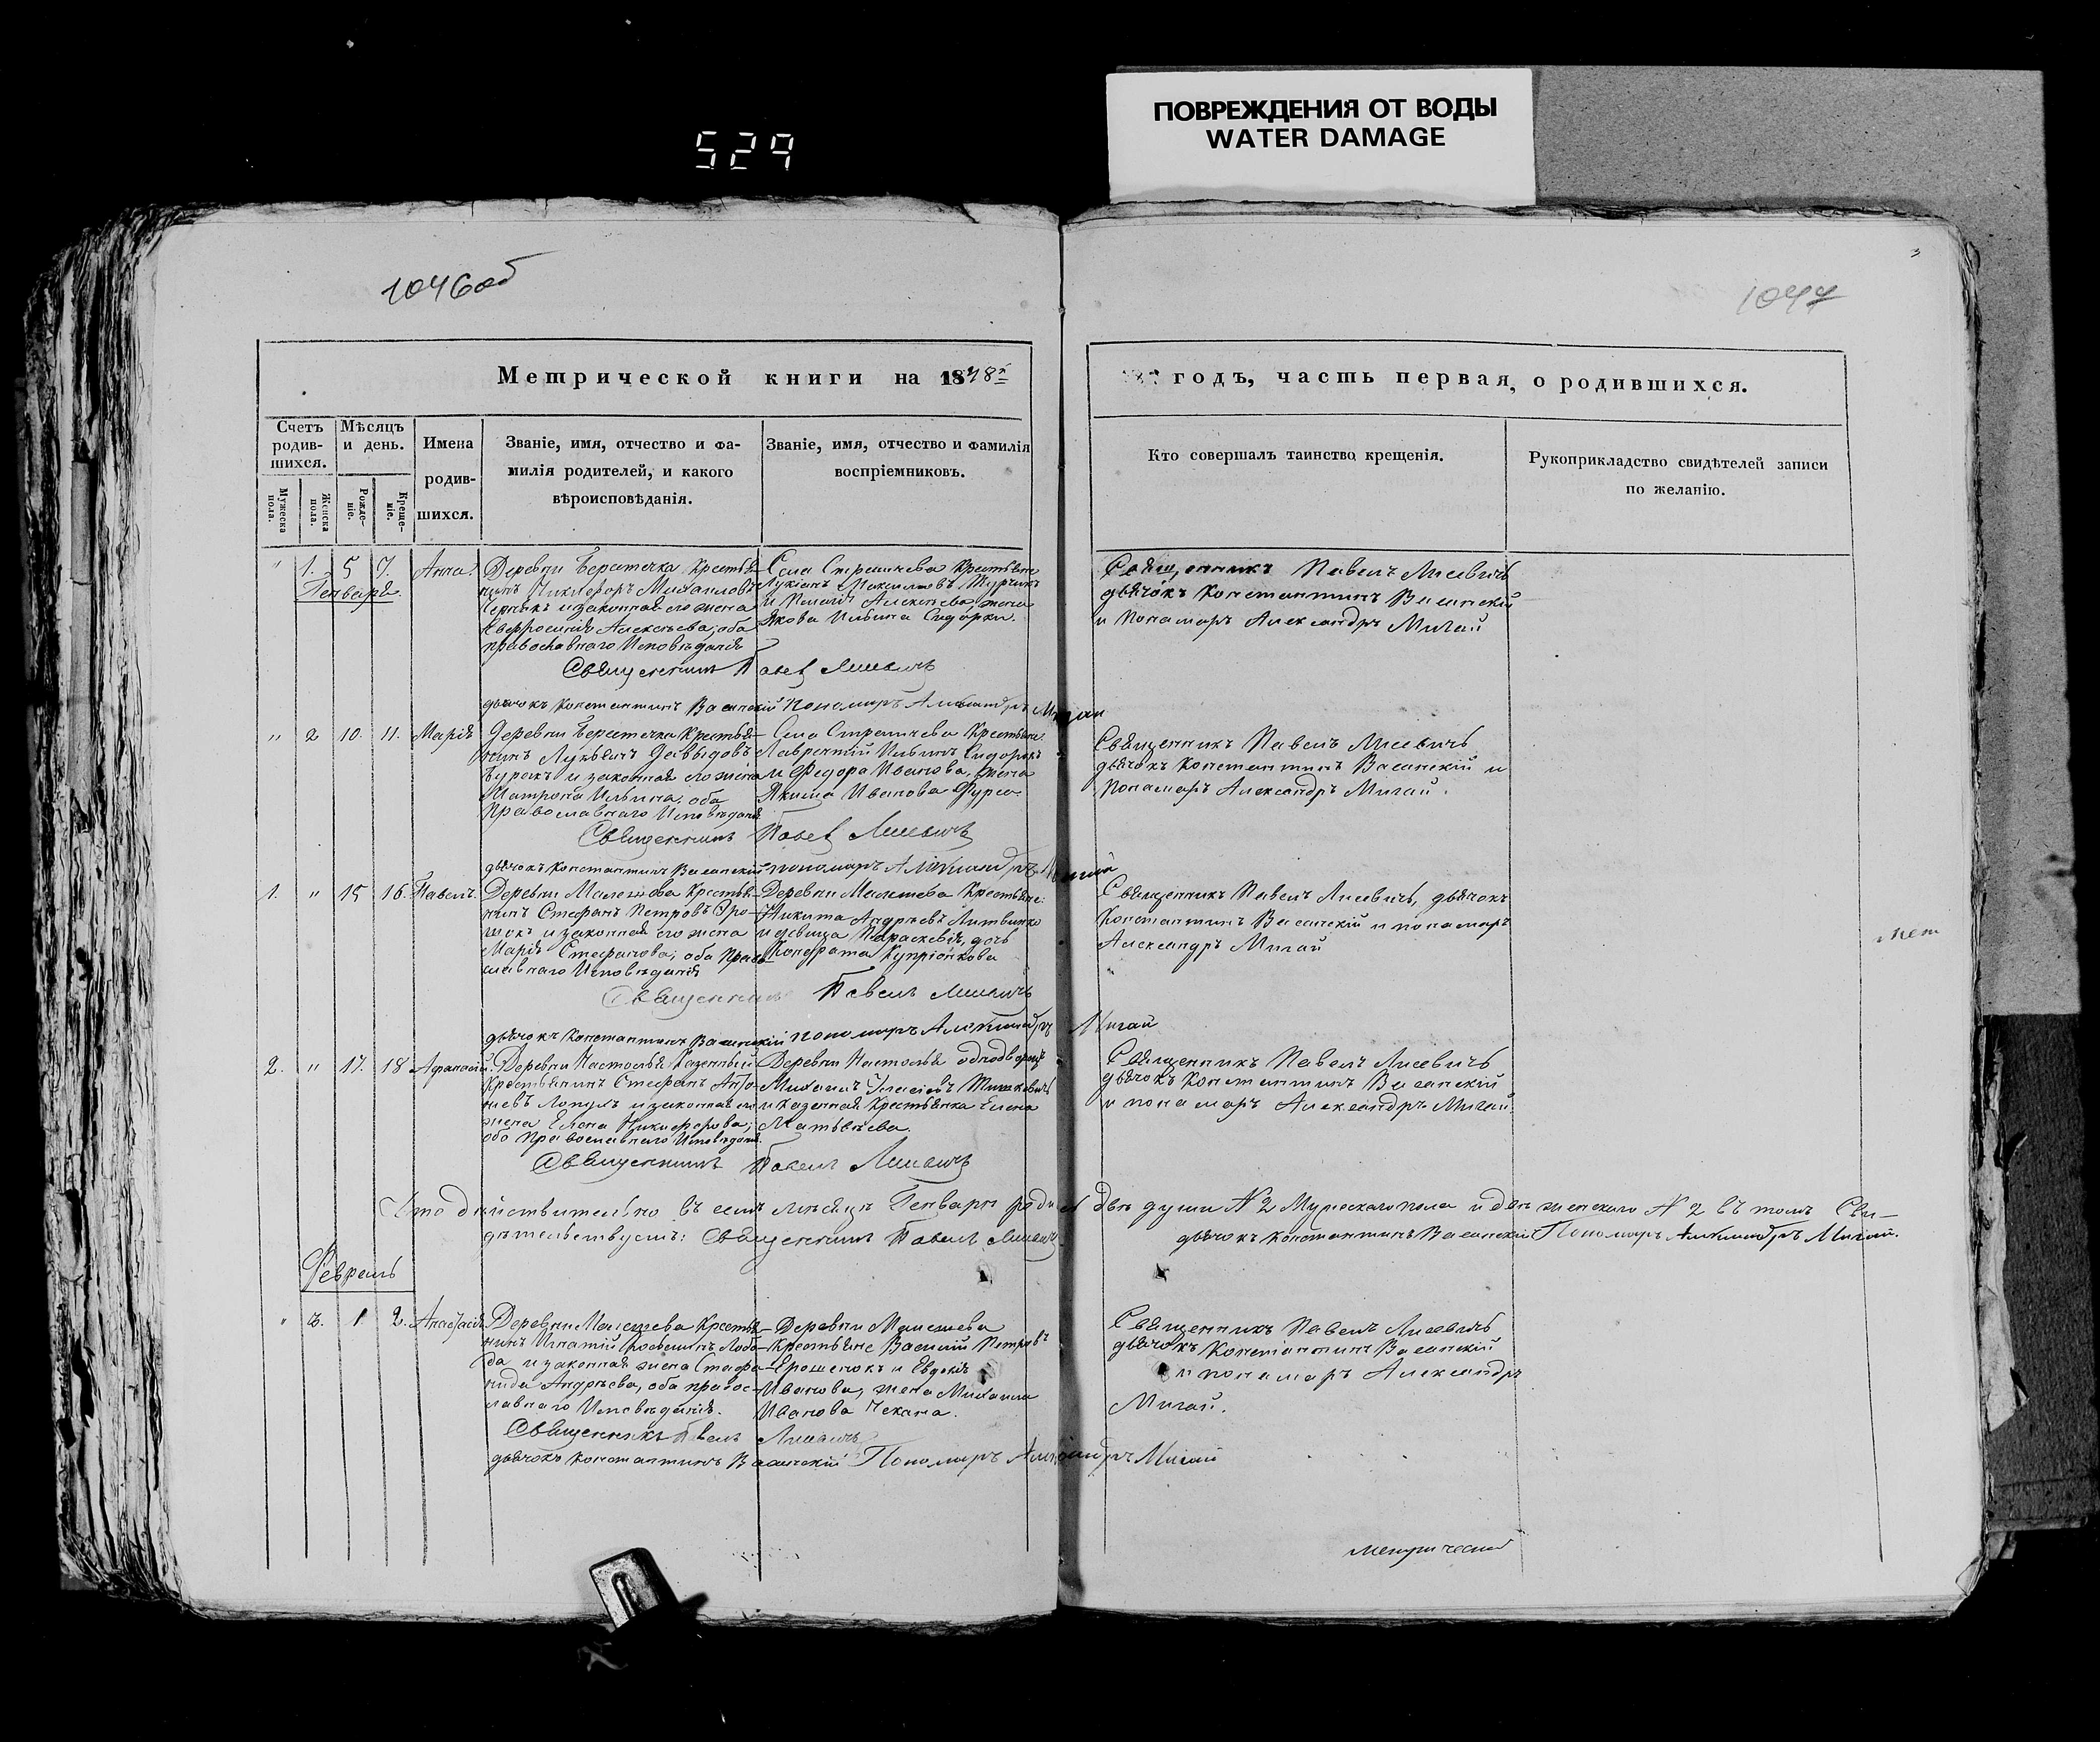 ПОВРЕЖДЕНИЯ ОТ ВОДЫ
WATER DAMAGE
529
1046об
1047
3
Метрической книги на 1848й
годъ, часть первая, о родившихся.
Счетъ родившихся.
Мѣсяцъ и день.
Имена родившихся.
Званіе, имя, отчество и фамилія родителей, и какого вѣроисповѣданія.
Званіе, имя, отчество и фамилія воспріемниковъ.
Кто совершалъ таинство крещенія.
Рукоприкладство свидѣтелей записи по желанію.
Мужеска пола.
Женска пола.
Рожденіе.
Крещеніе.
Генваря
" 1. 5 7. Анна.
Деревни Берестечка Крестья-
нинъ Никифоръ Михаиловъ
Чернякъ и законная его жена
Евфросинія Алексѣева, оба
православнаго Исповѣданія
Села Стрешчева Крестьяне
Лукіанъ Максимовъ Турчинъ
и Пелагія Алексѣева, жена
Якова Ильина Сидорки.
Священникъ Павелъ Лисевичъ
дьячокъ Константинъ Васанскій
и Понамарь Александръ Мигай
Священникъ Павел Лисевичъ
дьячокъ Константинъ Васанскій Пономарь Александръ Мигай
" 2 10. 11. Марія
Деревни Берестечка Крестья-
нинъ Лукьянъ Давыдовъ
Буракъ и законная его жена
Матрона Ильина, оба
Православнаго Исповѣданія
Села Стрешчева Крестьяне
Лаврентій Ильинъ Сидоркъ
и Федора Иванова, жена
Якима Иванова Фурса
Священникъ Павелъ Лисевичъ
дьячокъ Константинъ Васанскій и
Понамарь Александръ Мигай.
Священникъ Павел Лисевичъ
дьячокъ Константинъ Васанскій пономарь Александръ Мигай
1. " 15 16. Павелъ.
Деревни Малешева Крестья-
нинъ Стефанъ Петровъ Эро-
шокъ и законная его жена
Марія Стефанова, оба Право-
славнаго Исповѣданія
Деревни Малешева Крестьяне
Никита Андрѣевъ Литвинко
и девица Параскевія, дочь
Кондрата Купріонкова
Священникъ Павелъ Лисевичъ, дьячокъ
Константинъ Васанскій и понамарь
Александръ Мигай
мет
Священникъ Павелъ Лисевичъ
дьячокъ Константинъ Васанскій пономарь Александръ Мигай
2. " 17. 18 Афанасій.
Деревни Настолья Казенный
Крестьянинъ Стефанъ Анто-
ніевъ Лопухъ и законная его
жена Елена Никифорова;
оба православнаго Исповѣданія.
Деревни Настолья однодворецъ
Михаилъ Игнатіевъ Тишкевичъ
и казенная Крестьянка Елена
Матвѣева.
Священникъ Павелъ Лисевичъ
дьячокъ Константинъ Васанскій
и понамарь Александръ Мигай.
Священникъ Павелъ Лисевичъ
Что дѣйствительно въ семъ мѣсяцѣ Генварѣ родил двѣ души N 2 Мужескаго пола и двѣ женскаго N 2 въ томъ Сви-
дѣтельствуемъ: Священникъ Павелъ Лисевичъ дьячокъ Константинъ Васанскій Пономарь Александръ Мигай.
Февраль
" 3. 1 2. Анастасія
Деревни Малешева Крестья-
нинъ Игнатій Лобо-
да и законная жена Стефа-
нида Андрѣева, оба правос-
лавнаго Исповѣданія.
Деревни Малешева
Крестьяне Василій Петровъ
Ерошенокъ и Евдокія
Иванова, жена Михаила
Иванова Чекана.
Священникъ Павелъ Лисевичъ
дьячокъ Константинъ Васанскій
и понамарь Александръ
Мигай.
Священникъ Павелъ Лисевичъ
дьячокъ Константинъ Васанскій Пономарь Александръ Мигай
Метрической